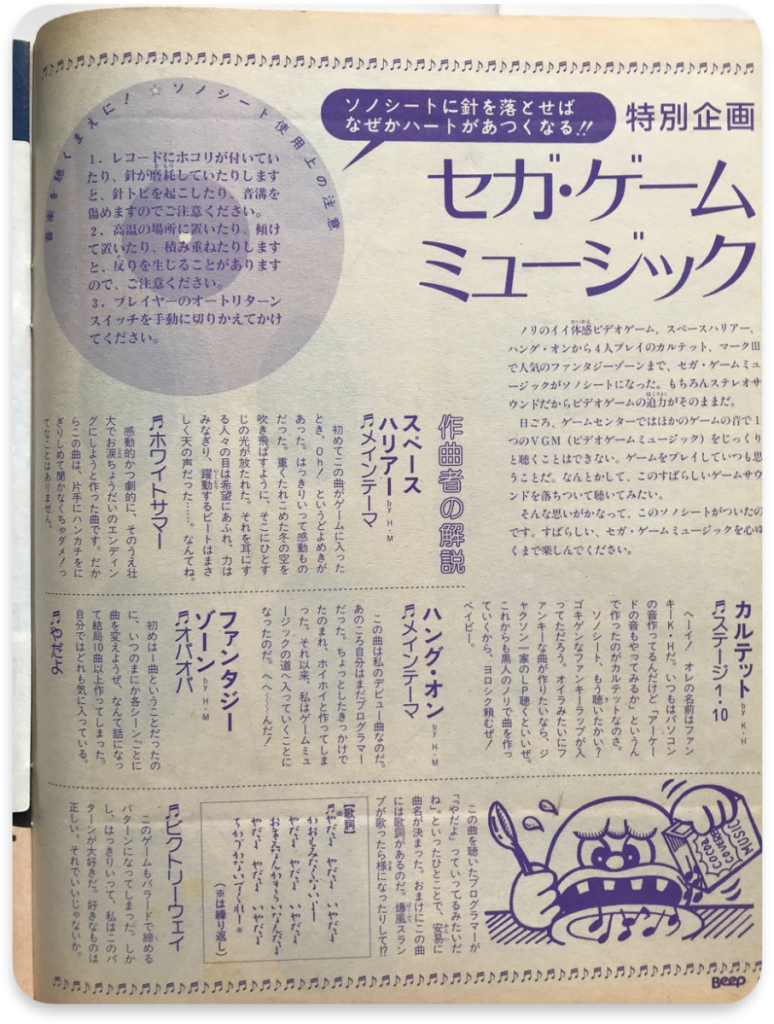 ソノシートに針を落とせば
なぜかハートがあつくなる!!
特別企画
セガ・ゲーム
ミュージック
音楽を聴くまえに! ☆ ソノシート使用上の注意
1．レコードにホコリが付いてい
たり、針が磨耗していたりします
と、針トビを起こしたり、音溝を
傷めますのでご注意ください。
2．高温の場所に置いたり、傾け
て置いたり、積み重ねたりします
と、反りを生じることがあります
ので、ご注意ください。
3．プレイヤーのオートリターン
スイッチを手動に切りかえてかけ
てください。
ノリのイイ体感ビデオゲーム、スペースハリアー、
ハング・オンから4人プレイのカルテット、マークIII
で人気のファンタジーゾーンまで、セガ・ゲームミュ
ージックがソノシートになった。もちろんステレオサ
ウンドだからビデオゲームの迫力がそのままだ。
日ごろ、ゲームセンターではほかのゲームの音で1
つのVGM（ビデオゲームミュージック）をじっくり
と聴くことはできない。ゲームをプレイしていつも思
うことだ。なんとかして、このすばらしいゲームサウ
ンドを落ちついて聴いてみたい。
そんな思いがかなって、このソノシートがついたの
です。すばらしい、セガ・ゲームミュージックを心ゆ
くまで楽しんでください。
作曲者の解説
スペース
ハリアー by H・M
♬メインテーマ
初めてこの曲がゲームに入った
とき、Oh! というどよめきが
あった。はっきりいって感動もの
だった。重くたれこめた冬の空を
吹き飛ばすように、そこにひとす
じの光が放たれた。それを耳にす
る人々の目は希望にあふれ、力は
みなぎり、躍動するビートはまさ
しく天の声だった……。なんてね。
♬ホワイトサマー
感動的かつ劇的に、そのうえ壮
大でお涙ちょうだいのエンディン
グにしようと作った曲です。だか
らこの曲は、片手にハンカチをに
ぎりしめて聞かなくちゃダメ!っ
てなことはありません。
カルテット by K・H
♬ステージ1・10
ヘーイ! オレの名前はファン
キーK・Hだ。いつもはパソコン
の音作ってるんだけど"アーケー
ドの音もやってみるか"というん
で作ったのがカルテットなのさ。
ソノシート、もう聴いたかい?
ゴキゲンなファンキーラップが入
ってただろう。オイラみたいにフ
アンキーな曲が作りたいなら、ジ
ャクソン一家のLP聴くといいぜ。
これからも黒人のノリで曲を作っ
ていくから、ヨロシク頼むぜ!
ベイビー。
ハング・オン by H・M
♬メインテーマ
この曲は私のデビュー曲なのだ。
あのころ自分はまだプログラマー
だった。ちょっとしたきっかけで
たのまれ、ホイホイと作ってしま
った。それ以来、私はゲームミュ
ージックの道へ入っていくことに
なったのだ。へへ〜〜んだ!
ファンタジー
ゾーン by H・M
♬オパオパ
初めは一曲ということだったの
に、いつのまにか各シーンごとに
曲を変えようぜ、なんて話になっ
て結局10曲以上作ってしまった。
自分ではどれも気に入っている。
♬やだよ
この曲を聴いたプログラマーが
「『やだよ』っていってるみたいだ
ね」といったひとことで、安易に
曲名が決まった。おまけにこの曲
には歌詞があるのだ。爆風スラン
プが歌ったら様になったりして!?
【歌詞】
(※は繰り返し)
♬ビクトリーウェイ
このゲームもバラードで締める
パターンになってしまった。しか
し、はっきりいって、私はこのパ
ターンが大好きだ。好きなものは
正しい。それでいいじゃないか。
MUSIC
COVERED
COCOA
Beep